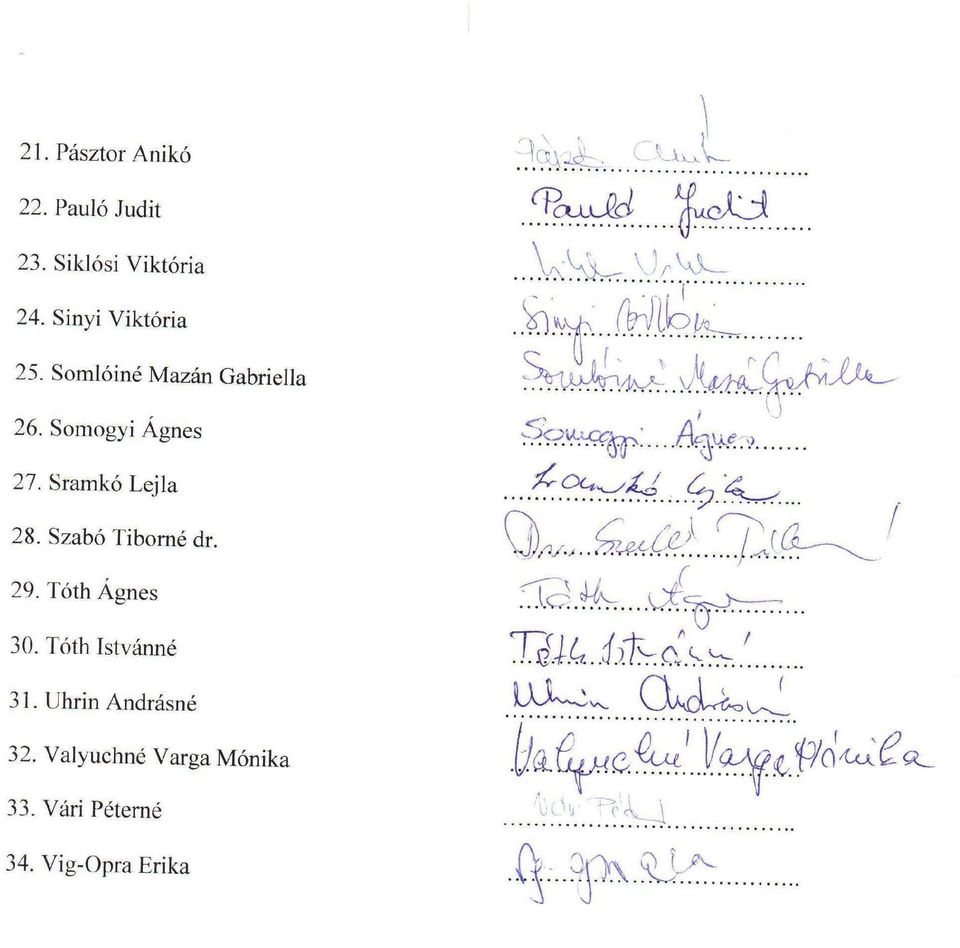 21. Pásztor Anikó
22. Pauló Judit Pauló Judit
23. Siklósi Viktória
24. Sinyi Viktória Sinyi Viktória
25. Somlóiné Mazán Gabriella Somlóiné Mazá Gabriella
26. Somogyi Ágnes Somogyi Ágnes
27. Sramkó Lejla Sramkó Lejla
28. Szabó Tiborné dr. Dr.
29. Tóth Ágnes Tóth Ágnes
30. Tóth Istvánné Tóth Istvánné
31. Uhrin Andrásné Uhrin Andrásné
32. Valyuchné Varga Mónika Valyuchné Varga Mónika
33. Vári Péterné
34. Vig-Opra Erika